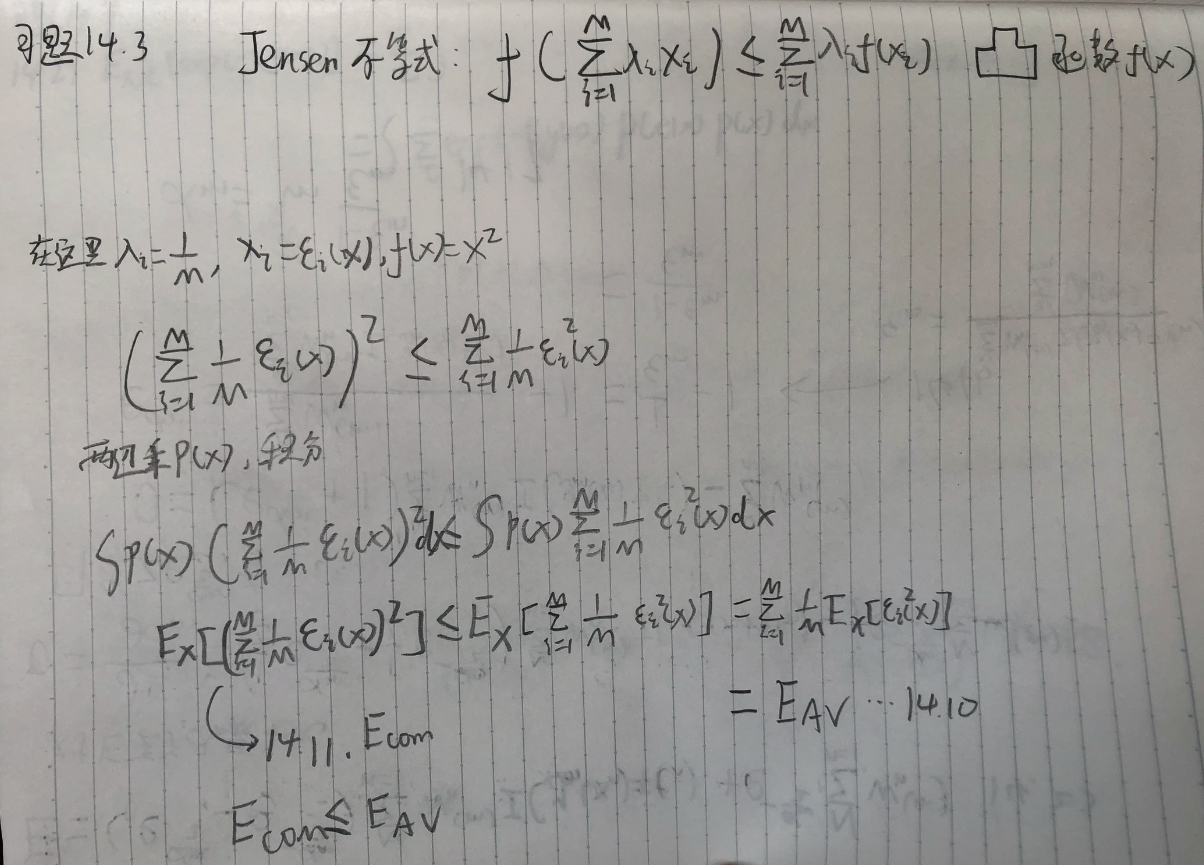 习题14.3 Jensen 不等式: f(∑_{i=1}^{M} λ_i x_i) ≤ ∑_{i=1}^{M} λ_i f(x_i) 凸 函数 f(x)
在这里 λ_i = 1/M, x_i = ε_i(x), f(x) = x²
(∑_{i=1}^{M} 1/M ε_i(x))² ≤ ∑_{i=1}^{M} 1/M ε_i²(x)
两边乘 P(x), 积分
∫P(x) (∑_{i=1}^{M} 1/M ε_i(x))² dx ≤ ∫P(x) ∑_{i=1}^{M} 1/M ε_i²(x) dx
E_x[(∑_{i=1}^{M} 1/M ε_i(x))²] ≤ E_x[∑_{i=1}^{M} 1/M ε_i²(x)] = ∑_{i=1}^{M} 1/M E_x[ε_i²(x)]
= E_{AV} ... 14.10
↳ 14.11. E_{com}
E_{com} ≤ E_{AV}